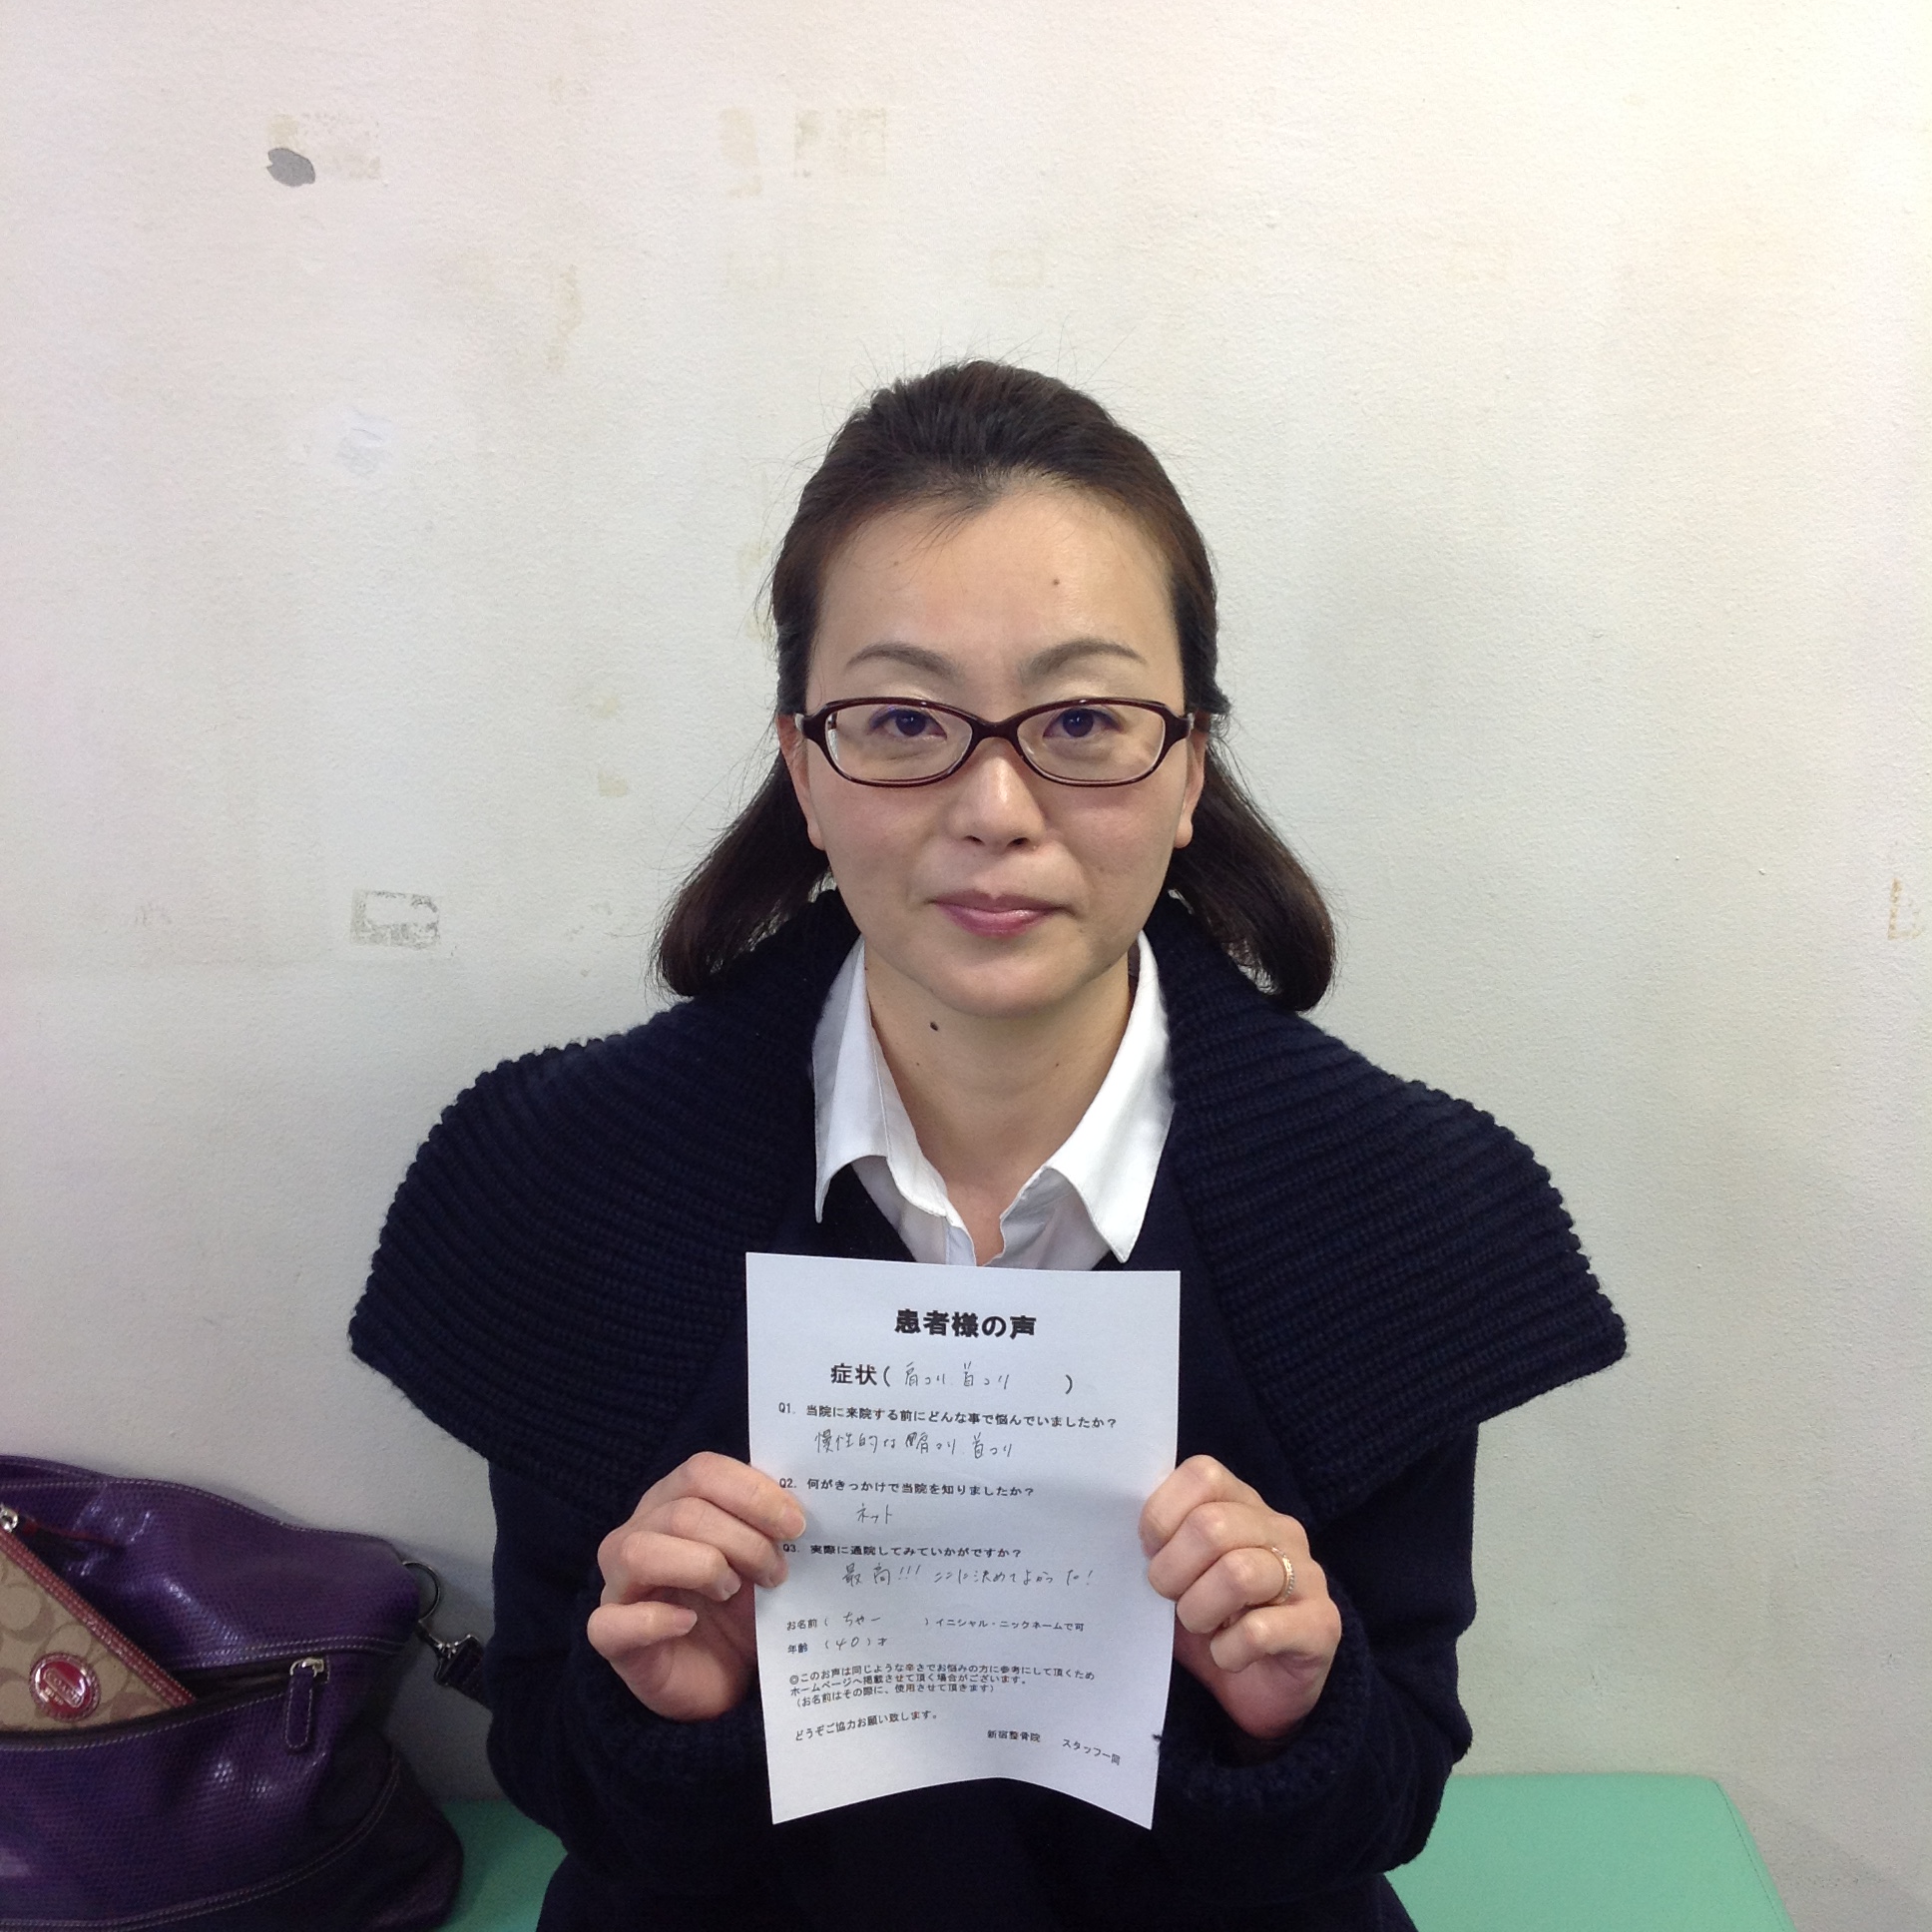 患者様の声
症状( 肩コリ 首コリ )
Q1. 当院に来院する前にどんな事で悩んでいましたか?
慢性的な肩コリ 首コリ
Q2. 何がきっかけで当院を知りましたか?
ネット
Q3. 実際に通院してみていかがですか?
最高!!! ここに決めてよかった!
お名前( ちゃー )イニシャル・ニックネームで可
年齢 (40)才
◎このお声は同じような辛さでお悩みの方に参考にして頂くため
ホームページへ掲載させて頂く場合がございます。
(お名前はその際に、使用させて頂きます)
どうぞご協力お願い致します。
新宿整骨院 スタッフ一同